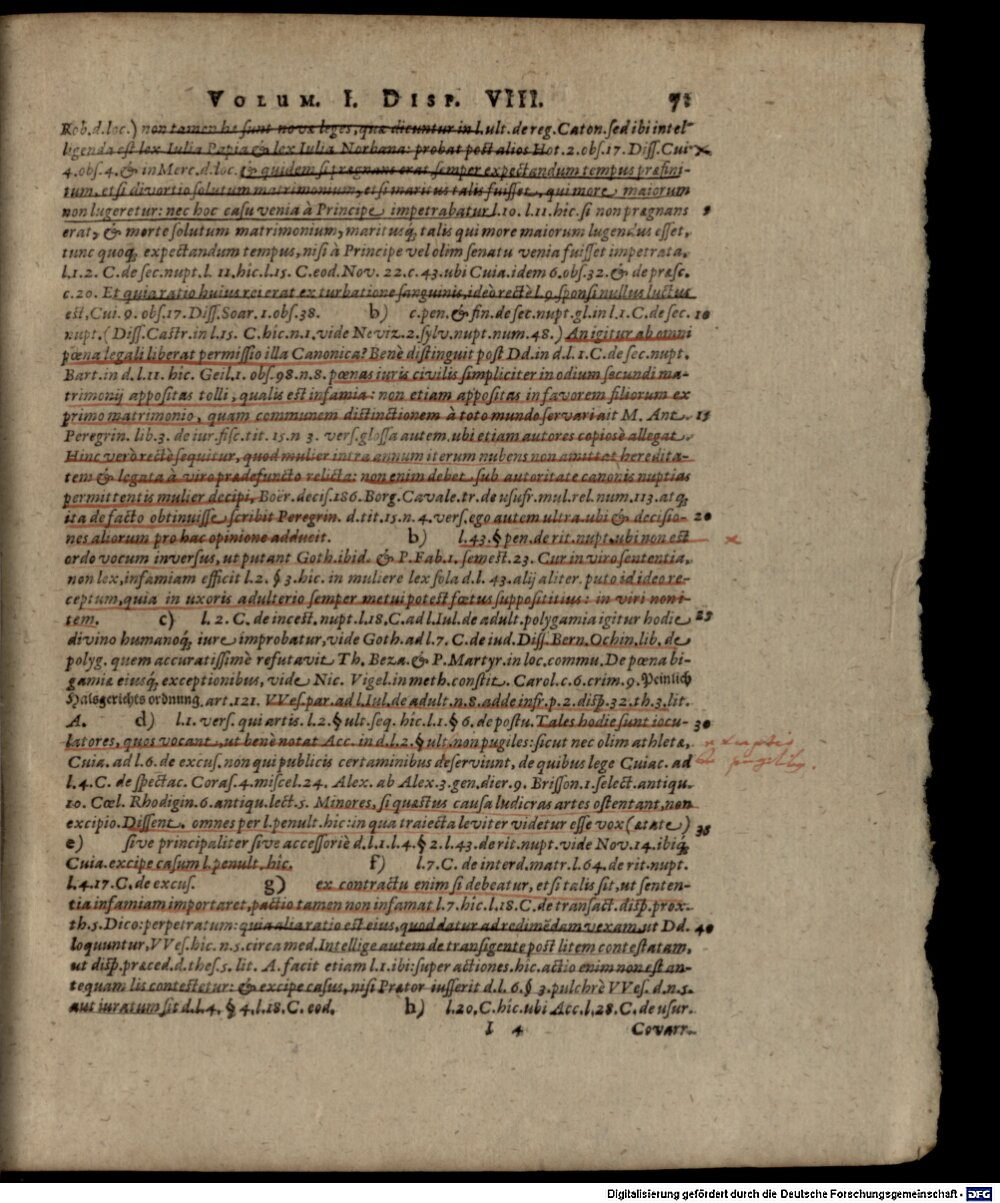 VOLUM. I. DISP. VIII. 71
Rob.d.loc.) non tamen hę sunt novæ leges, quæ dicuntur in l. ult. de reg. Caton. sed ibi intel-
ligenda est lex Iulia Papia & lex Iulia Norbana: probat post alios Hot. 2. obs. 17. Diss. Cui
4. obs. 4. & in Merc. d. loc. & quidem si prægnans erat semper expectandum tempus præfini-
tum, etsi divortio solutum matrimonium, etsi maritus talis fuisset, qui more maiorum
non lugeretur: nec hoc casu venia à Principe impetrabatur l. 10. l. 11. hic. si non prægnans 5
erat, & morte solutum matrimonium, maritusq́, talis qui more maiorum lugendus esset,
tunc quoq́, expectandum tempus, nisi à Principe vel olim senatu venia fuisset impetrata.
l. 1. 2. C. de sec. nupt. l. 11. hic. l. 15. C. eod. Nov. 22. c. 43. ubi Cuia. idem 6. obs. 32. & de præsc.
c. 20. Et quia ratio huius rei erat ex turbatione sanguinis, ideò rectè l. 9. sponsi nullus luctus
est, Cui. 9. obs. 17. Diss. Soar. 1. obs. 38. b) c. pen. & fin. de sec. nupt. gl. in l. 1. C. de sec. 10
nupt. (Diss. Castr. in l. 15. C. hic. n. 1. vide Neviz. 2. sylv. nupt. num. 48.) An igitur ab omni
pœna legali liberat permissio illa Canonica? Benè distinguit post Dd. in d. l. 1. C. de sec. nupt.
Bart. in d. l. 11. hic. Geil. 1. obs. 98. n. 8. pœnas iuris civilis simpliciter in odium secundi ma-
trimonij appositas tolli, qualis est infamia: non etiam appositas in favorem filiorum ex
primo matrimonio, quam communem distinctionem à toto mundo servari ait M. Ant. 15
Peregrin. lib. 3. de iur. fisc. tit. 15. n 3. vers. glossa autem. ubi etiam autores copiosè allegat.
Hinc verò rectè sequitur, quod mulier intra annum iterum nubens non amittat heredita-
tem & legata à viro prædefuncto relicta: non enim debet sub autoritate canonis nuptias
permittentis mulier decipi, Boër. decis. 186. Borg. Cavale. tr. de usufr. mul. rel. num. 113. atq́,
ita de facto obtinuisse scribit Peregrin. d. tit. 15. n. 4. vers. ego autem ultra. ubi & decisio- 20
nes aliorum pro hac opinione adducit. b) l. 43. § pen. de rit. nupt. ubi non est
ordo vocum inversus, ut putant Goth. ibid. & P. Fab. 1. semest. 23. Cur in viro sententia,
non lex, infamiam efficit l. 2. § 3. hic. in muliere lex sola d. l. 43. alij aliter. puto id ideo re-
ceptum, quia in uxoris adulterio semper metui potest fœtus supposititius: in viri non i-
tem. c) l. 2. C. de incest. nupt. l. 18. C. ad l. Iul. de adult. polygamia igitur hodie 25
divino humanoq́, iure improbatur, vide Goth. ad l. 7. C. de iud. Diss. Bern. Ochin. lib. de
polyg. quem accuratissimè refutavit Th. Beza. & P. Martyr. in loc. commu. De pœna bi-
gamiæ eiusq́, exceptionibus, vide Nic. Vigel. in meth. constit. Carol. c. 6. crim. 9. Peinlich
Halsgerichts ordnung. art. 121. VVes. par. ad l. Iul. de adult. n. 8. adde infr. p. 2. disp. 32. th. 3. lit.
A. d) l. 1. vers. qui artis. l. 2. § ult. seq. hic. l. 1. § 6. de postu. Tales hodie sunt iocu- 30
latores, quos vocant, ut benè notat Acc. in d. l. 2. § ult. non pugiles: sicut nec olim athletæ,
Cuia. ad l. 6. de excus. non qui publicis certaminibus deserviunt, de quibus lege Cuiac. ad
l. 4. C. de spectac. Coras. 4. miscel. 24. Alex. ab Alex. 3. gen. dier. 9. Brisson. 1. select. antiqu.
10. Cœl. Rhodigin. 6. antiqu. lect. 5. Minores, si quæstus causa ludicras artes ostentant, non
excipio. Dissent. omnes per l. penult. hic: in qua traiecta leviter videtur esse vox (ætate) 35
e) sive principaliter sive accessoriè d. l. 1. l. 4. § 2. l. 43. de rit. nupt. vide Nov. 14. ibiq́,
Cuia. excipe casum l. penult. hic. f) l. 7. C. de interd. matr. l. 64. de rit. nupt.
l. 4. 17. C. de excus. g) ex contractu enim si debeatur, etsi talis sit, ut senten-
tia infamiam importaret, pactio tamen non infamat l. 7. hic. l. 18. C. de transact. disp. prox.
th. 5. Dico: perpetratum: quia alia ratio est eius, quod datur ad redimēdam vexam, ut Dd. 40
loquuntur, VVes. hic. n. 5. circa med. Intellige autem de transigente post litem contestatam,
ut disp. præced. d. thes. 5. lit. A. facit etiam l. 1. ibi: super actiones. hic. actio enim non est an-
tequam lis contestetur: & excipe casus, nisi Prætor iusserit d. l. 6. § 3. pulchrè VVes. d. n. 5.
aut iuratum sit d. l. 4. § 4. l. 18. C. eod. h) l. 20. C. hic. ubi Acc. l. 28. C. de usur.
I 4 Covarr.
Digitalisierung gefördert durch die Deutsche Forschungsgemeinschaft - DFG